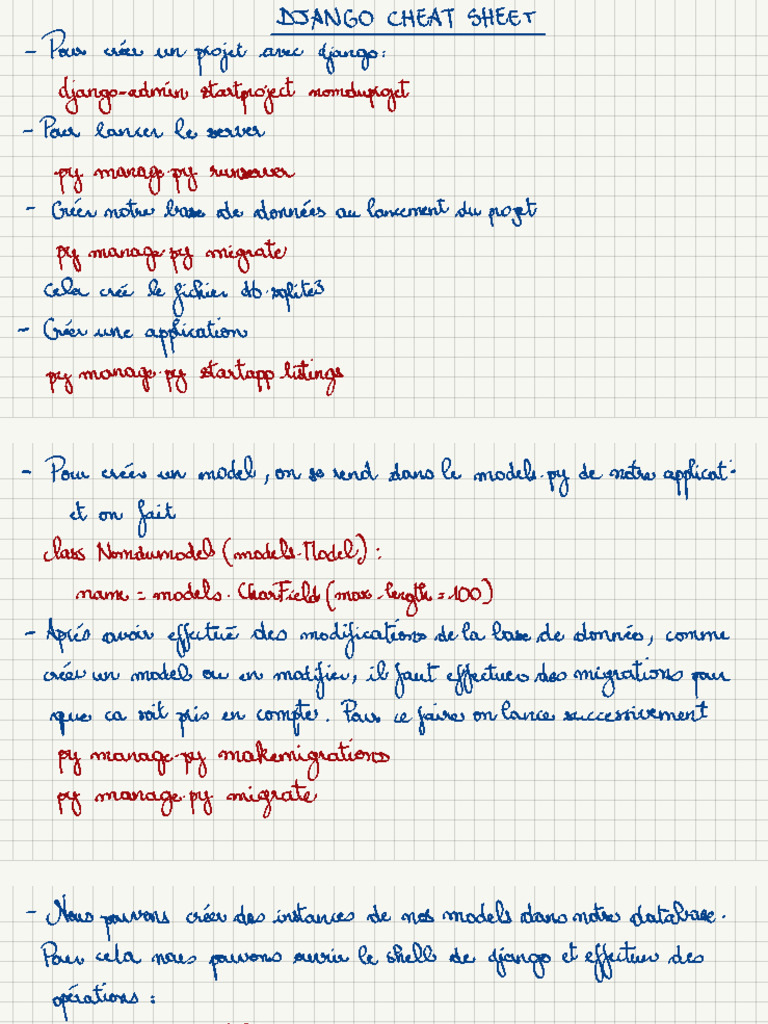 DJANGO CHEAT SHEET
- Pour créer un projet avec django:
django-admin startproject nomduprojet
- Pour lancer le server
py manage.py runserver
- Créer notre base de données au lancement du projet
py manage.py migrate
Cela crée le fichier db.sqlite3
- Créer une application
py manage.py startapp listings
- Pour créer un model, on se rend dans le models.py de notre applicat°
et on fait
class Nomdumodels (models.Model):
name = models.CharField(max_length=100)
- Après avoir effectué des modifications de la base de données, comme
créer un model ou en modifier, il faut effectuer des migrations pour
que ca soit pris en compte. Pour ce faire on lance successivement
py manage.py makemigrations
py manage.py migrate
- Nous pouvons créer des instances de nos models dans notre database.
Pour cela nous pouvons ouvrir le shell de django et effectuer des
opérations :